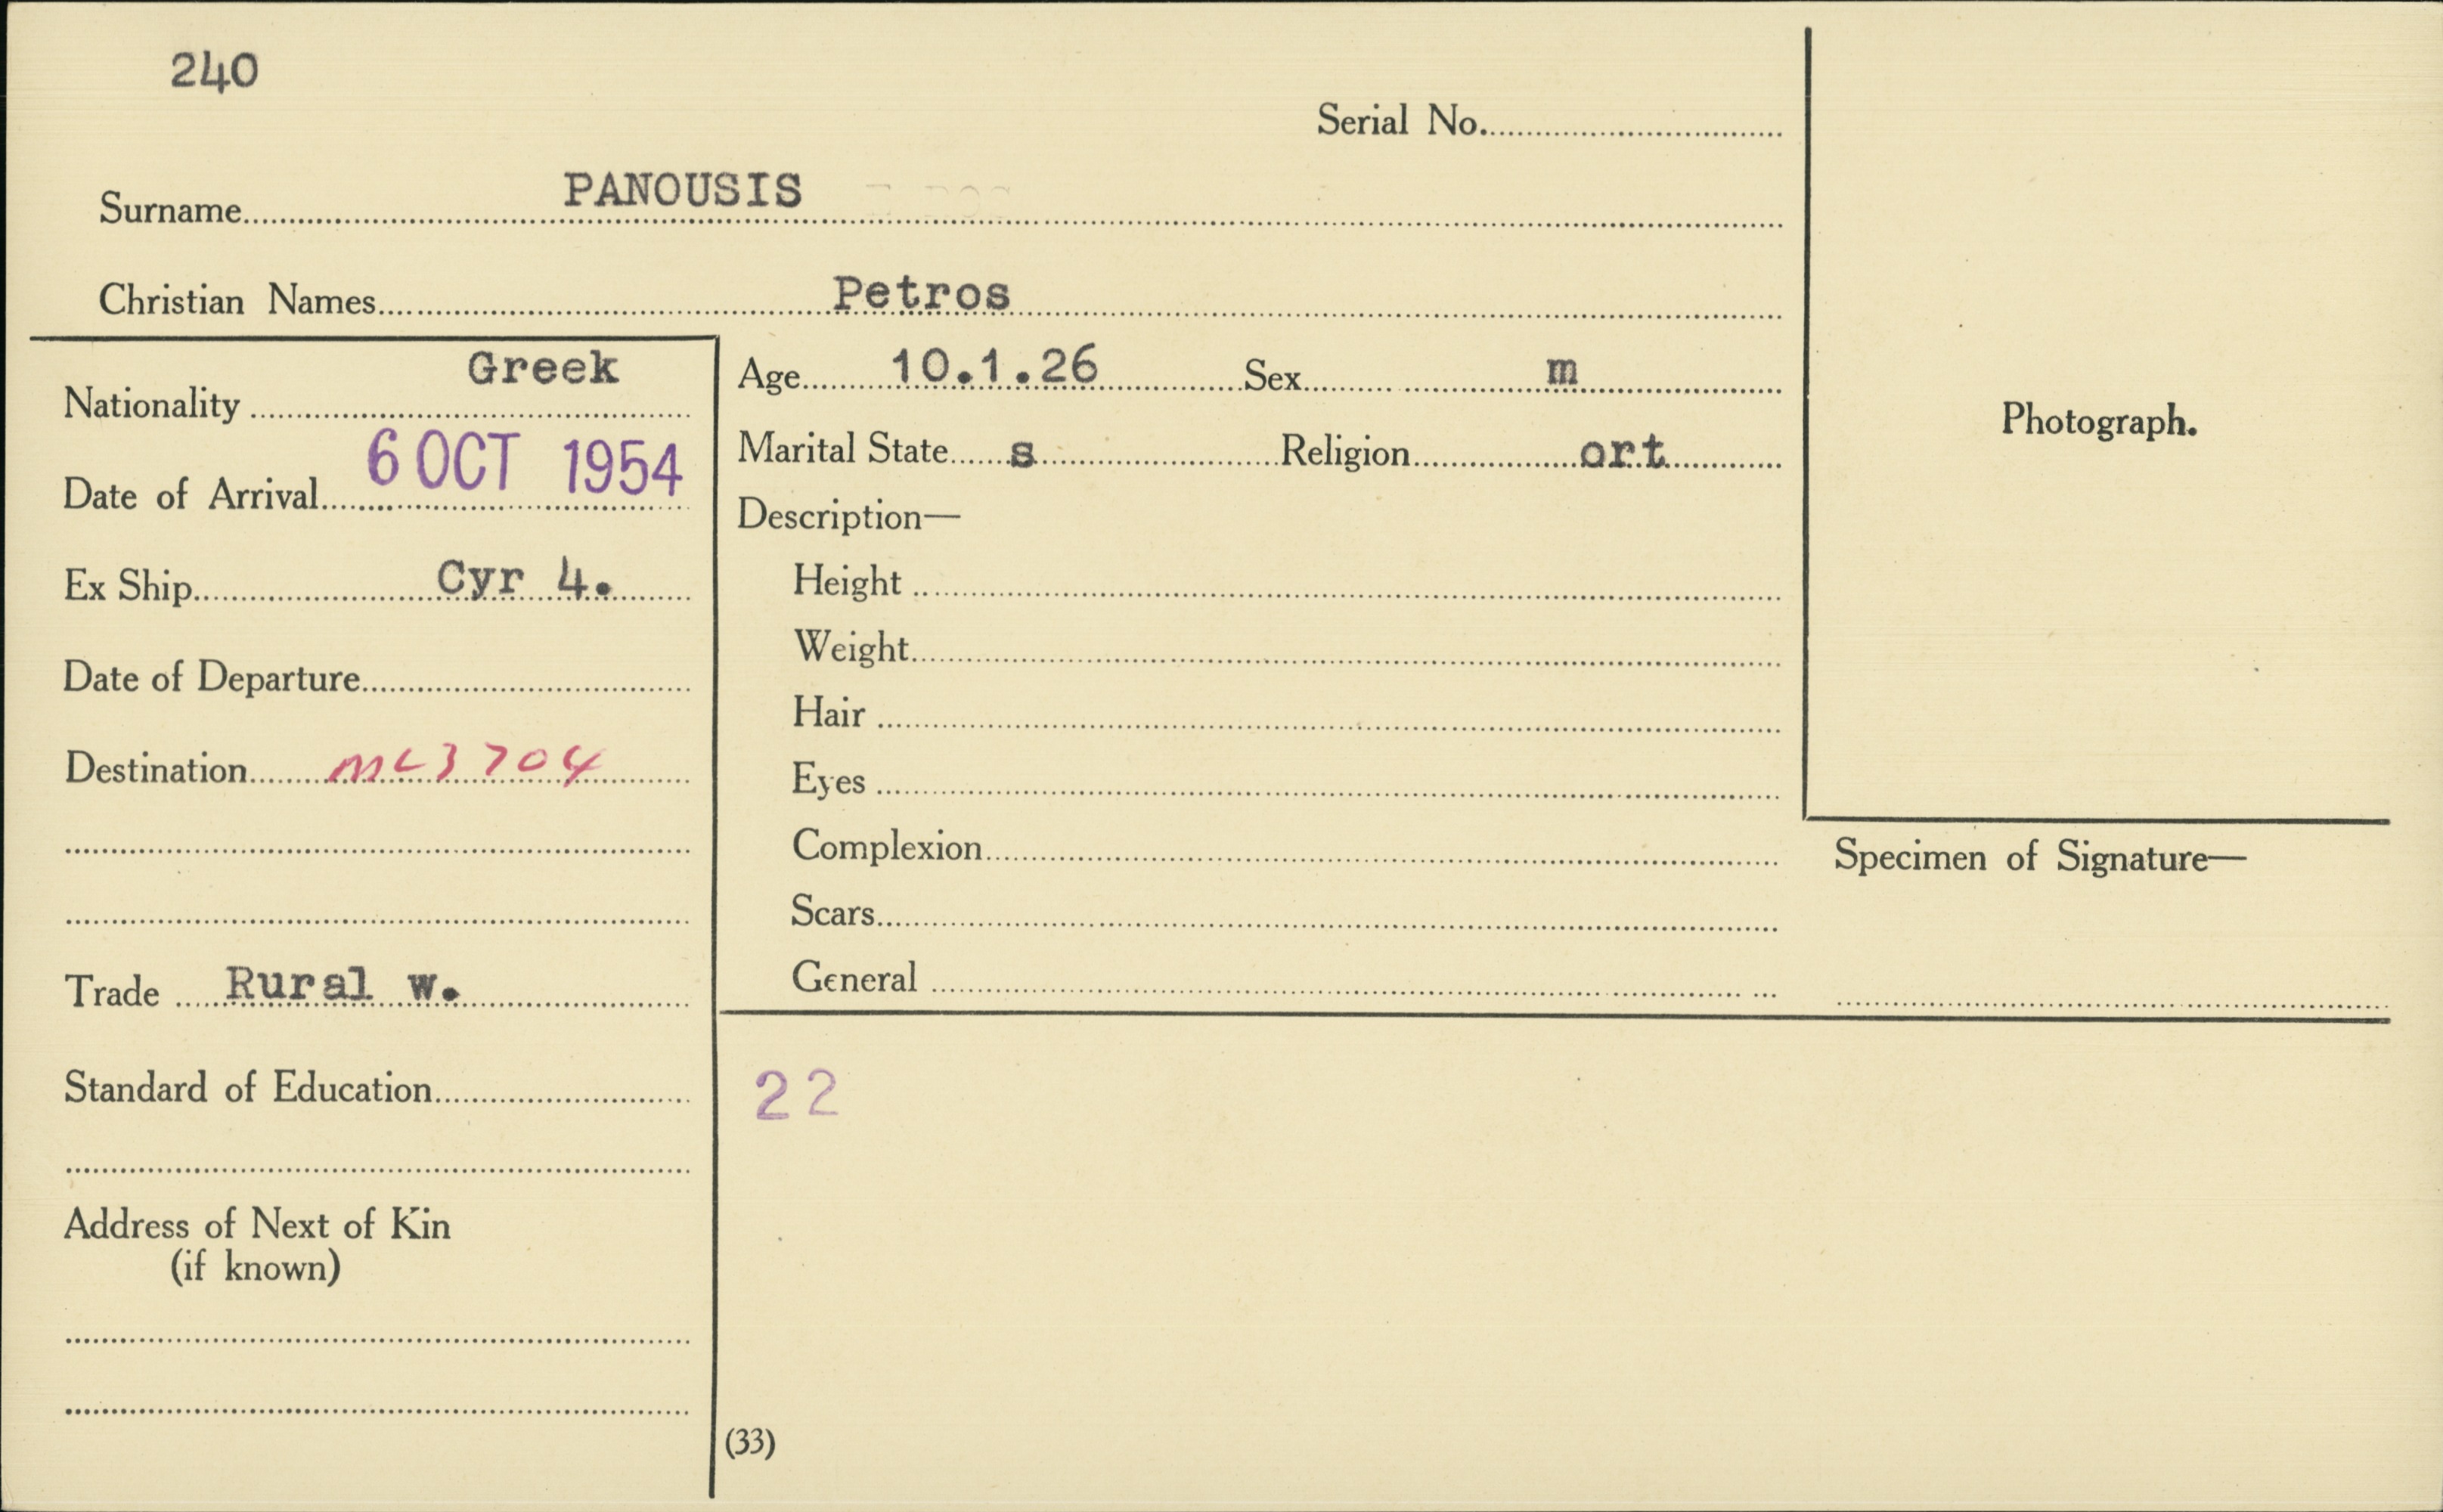 240
Serial No.
Surname PANOUSIS
Christian Names Petros
Nationality Greek
Date of Arrival 6 OCT 1954
Ex Ship Cyr 4.
Date of Departure
Destination MC3704
Trade Rural w.
Standard of Education
Address of Next of Kin
(if known)
Age 10.1.26 Sex m
Marital State s Religion ort
Description—
Height
Weight
Hair
Eyes
Complexion
Scars
General
22
(33)
Photograph.
Specimen of Signature—